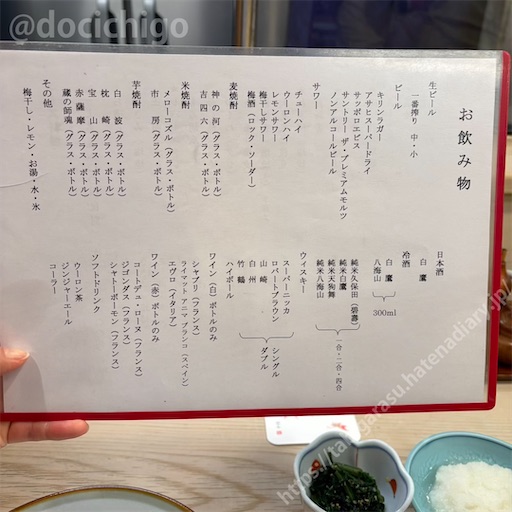 @docichigo
お飲み物
生ビール
一番搾り 中・小
ビール
キリンラガー
アサヒスーパードライ
サッポロエビス
サントリー ザ・プレミアムモルツ
ノンアルコールビール
サワー
チューハイ
ウーロンハイ
レモンサワー
梅干しサワー
梅酒(ロック・ソーダー)
麦焼酎
神の河(グラス・ボトル)
吉四六(グラス・ボトル)
米焼酎
メローコズル(グラス・ボトル)
市 房(グラス・ボトル)
芋焼酎
白 波(グラス・ボトル)
枕 崎(グラス・ボトル)
宝 山(グラス・ボトル)
赤薩摩(グラス・ボトル)
蔵の師魂(グラス・ボトル)
その他
梅干し・レモン・お湯・水・氷
日本酒
白 鷹
冷酒
白鷹
八海山
300ml
純米久保田(碧壽)
純米白鷹
純米天狗舞
純米八海山
一合・二合・四合
ウィスキー
スーパーニッカ
ロバートブラウン
山崎
白州
竹鶴
シングル
ダブル
ハイボール
ワイン(白)ボトルのみ
シャブリ(フランス)
ライマット アニマ ブランコ(スペイン)
エヴロ(イタリア)
ワイン(赤)ボトルのみ
コートデュ・ローヌ(フランス)
ジゴンダス(フランス)
シャトーボーモン(フランス)
ソフトドリンク
ウーロン茶
ジンジャーエール
コーラー